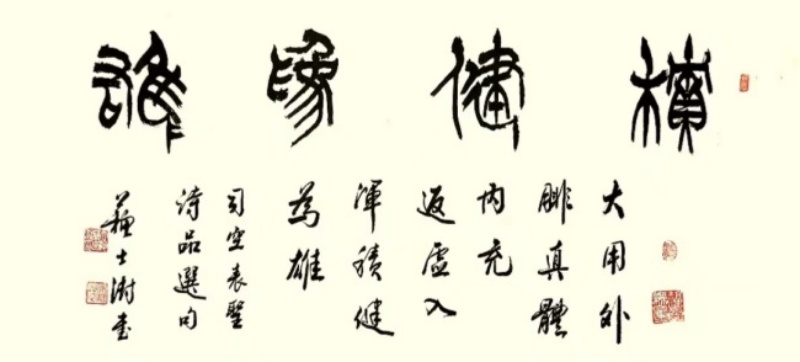 積健為雄
大用外
腓真體
內充
返虛入
渾積健
為雄
司空表聖
詩品選句
蘇士澍書